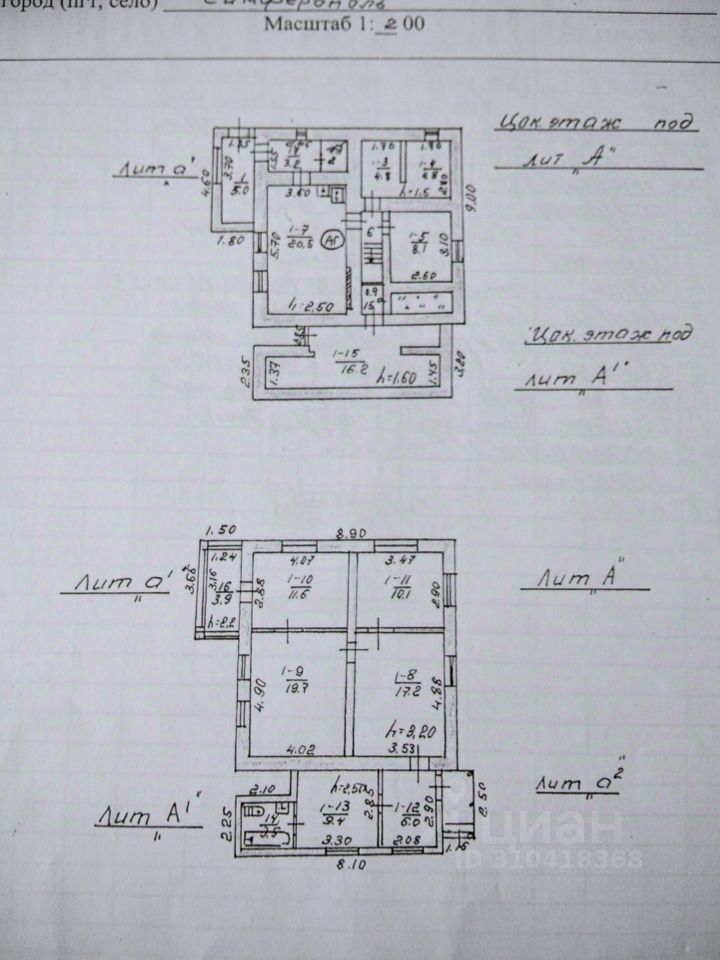 город (пгт, село) Симферополь
Масштаб 1: 2 00
Цок. этаж под
лит "А"
Лит а'
1.35
3.70
1
5.0
4.60
1.80
3.2
3.60
1-7
20.5
АГ
5.70
h=2.50
1.90
1.90
1-3
4.8
1-4
4.8
2.80
h=1.6
9.00
6
1-5
8.1
3.10
2.60
0.9
15
Цок. этаж под
лит "А''
1-15
16.2
h=1.60
2.35
1.37
1.45
3.20
1.50
8.90
1.24
3.16
3.68
16
3.9
h=2.2
4.07
1-10
11.6
2.88
3.47
1-11
10.1
2.90
Лит "а'
Лит "А"
1-9
19.7
4.90
4.02
1-8
17.2
4.88
h=3,20
3.53
Лит "а²"
Лит "А1"
2.10
2.25
14
3.5
h=2.50
1-13
9.4
2.85
3.30
1-12
6.0
2.90
2.08
2.50
1.15
8.10
циан
ID 310418368